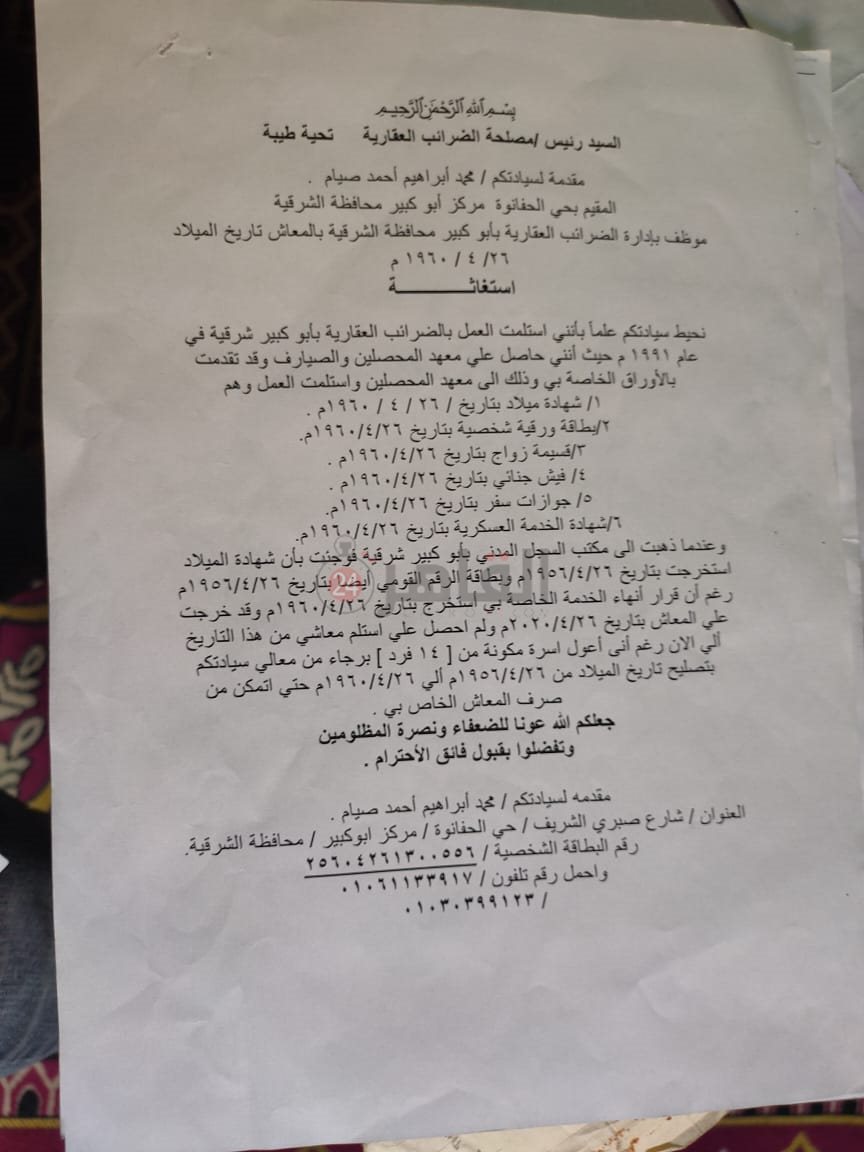 بسم الله الرحمن الرحيم
السيد رئيس /مصلحة الضرائب العقارية تحية طيبة
مقدمة لسيادتكم / محمد أبراهيم أحمد صيام .
المقيم بحي الحفانوة مركز أبو كبير محافظة الشرقية
موظف بإدارة الضرائب العقارية بأبو كبير محافظة الشرقية بالمعاش تاريخ الميلاد
٢٦/ ٤ / ١٩٦٠ م
استغاثـــــــــــة
نحيط سيادتكم علماً بأنني استلمت العمل بالضرائب العقارية بأبو كبير شرقية في
عام ١٩٩١ م حيث أنني حاصل علي معهد المحصلين والصيارف وقد تقدمت
بالأوراق الخاصة بي وذلك الى معهد المحصلين واستلمت العمل وهم
١/ شهادة ميلاد بتاريخ / ٢٦ / ٤ / ١٩٦٠م .
٢/بطاقة ورقية شخصية بتاريخ ١٩٦٠/٤/٢٦م.
٣/قسيمة زواج بتاريخ ١٩٦٠/٤/٢٦م .
٤/ فيش جنائي بتاريخ ١٩٦٠/٤/٢٦م .
٥/ جوازات سفر بتاريخ ١٩٦٠/٤/٢٦م.
٦/شهادة الخدمة العسكرية بتاريخ ١٩٦٠/٤/٢٦م.
وعندما ذهبت الى مكتب السجل المدني بأبو كبير شرقية فوجئت بأن شهادة الميلاد
استخرجت بتاريخ ١٩٥٦/٤/٢٦م وبطاقة الرقم القومي أيضا بتاريخ ١٩٥٦/٤/٢٦م
رغم أن قرار أنهاء الخدمة الخاصة بي استخرج بتاريخ ١٩٦٠/٤/٢٦م وقد خرجت
علي المعاش بتاريخ ٢٠٢٠/٤/٢٦م ولم احصل علي استلم معاشي من هذا التاريخ
ألي الان رغم أنى أعول اسرة مكونة من [ ١٤ فرد ] برجاء من معالي سيادتكم
بتصليح تاريخ الميلاد من ١٩٥٦/٤/٢٦م ألي ١٩٦٠/٤/٢٦م حتي اتمكن من
صرف المعاش الخاص بي .
جعلكم الله عونا للضعفاء ونصرة المظلومين
وتفضلوا بقبول فائق الأحترام .
مقدمه لسيادتكم / محمد أبراهيم أحمد صيام .
العنوان / شارع صبري الشريف / حي الحفانوة / مركز ابوكبير / محافظة الشرقية.
رقم البطاقة الشخصية / ٢٥٦٠٤٢٦١٣٠٠٥٥٦
واحمل رقم تلفون / ٠١٠٦١١٣٣٩١٧
/ ٠١٠٣٠٣٩٩١٢٣
القاهرة 24